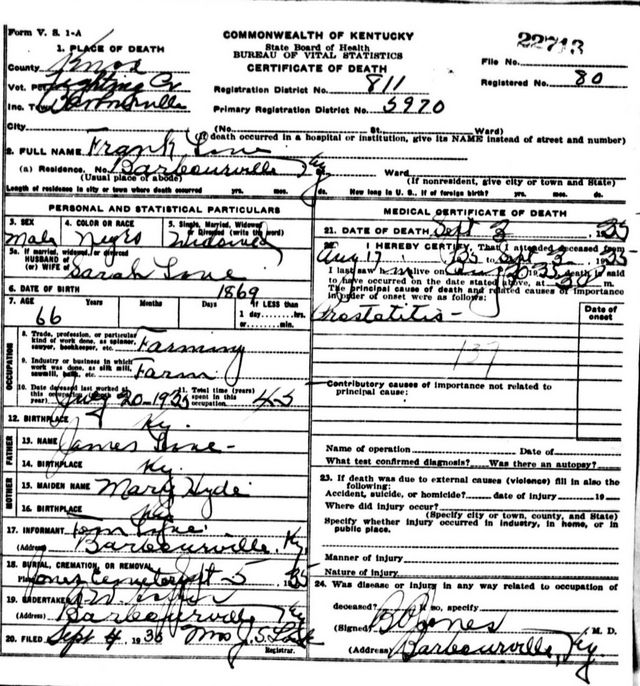 Form V. S. 1-A
COMMONWEALTH OF KENTUCKY
State Board of Health
BUREAU OF VITAL STATISTICS
CERTIFICATE OF DEATH
22713
File No.
Registered No. 80
1. PLACE OF DEATH
County Knox
Vot. Pct.
Inc. Town Barbourville
Registration District No. 811
Primary Registration District No. 5970
City (No. St. Ward)
(If death occurred in a hospital or institution, give its NAME instead of street and number)
2. FULL NAME Frank Love
(a) Residence. No. Barbourville Ky Ward
(Usual place of abode) (If nonresident, give city or town and State)
Length of residence in city or town where death occurred yrs. mos. ds. How long in U. S., if of foreign birth? yrs. mos. ds.
PERSONAL AND STATISTICAL PARTICULARS
3. SEX 4. COLOR OR RACE 5. Single, Married, Widowed or Divorced (write the word)
Male Negro Widowed
5a. If married, widowed, or divorced
HUSBAND of
(or) WIFE of Sarah Love
6. DATE OF BIRTH 1869
7. AGE Years Months Days If LESS than
66 1 day hrs.
or min.
OCCUPATION
8. Trade, profession, or particular kind of work done, as spinner, sawyer, bookkeeper, etc. Farming
9. Industry or business in which work was done, as silk mill, sawmill, bank, etc. Farm
10. Date deceased last worked at this occupation year) 20-1935
11. Total time (years) spent in this occupation 45
12. BIRTHPLACE Ky.
FATHER
13. NAME James Love
14. BIRTHPLACE Ky.
MOTHER
15. MAIDEN NAME Mary Hyde
16. BIRTHPLACE
17. INFORMANT Tom Love
(Address) Barbourville, Ky.
18. BURIAL, CREMATION, OR REMOVAL
Jones Cemetery Sept 5 1935
19. UNDERTAKER
(Address) Barbourville Ky
20. FILED Sept 4 1935 Mrs J. S.
Registrar.
MEDICAL CERTIFICATE OF DEATH
21. DATE OF DEATH Sept 3 1935
22. I HEREBY CERTIFY, That I attended deceased from
Aug 17 1935 to Sept 3 1935
I last saw h m alive on 1935 death is said
to have occurred on the date stated above, at m.
The principal cause of death and related causes of importance
in order of onset were as follows:
Date of onset
Prostatitis -
137
Contributory causes of importance not related to
principal cause:
Name of operation Date of
What test confirmed diagnosis? Was there an autopsy?
23. If death was due to external causes (violence) fill in also the
following:
Accident, suicide, or homicide? date of injury 19
Where did injury occur?
(Specify city or town, county, and State)
Specify whether injury occurred in industry, in home, or in
public place.
Manner of injury
Nature of injury
24. Was disease or injury in any way related to occupation of
deceased? If so, specify
(Signed) B C Jones M. D.
(Address) Barbourville, Ky.